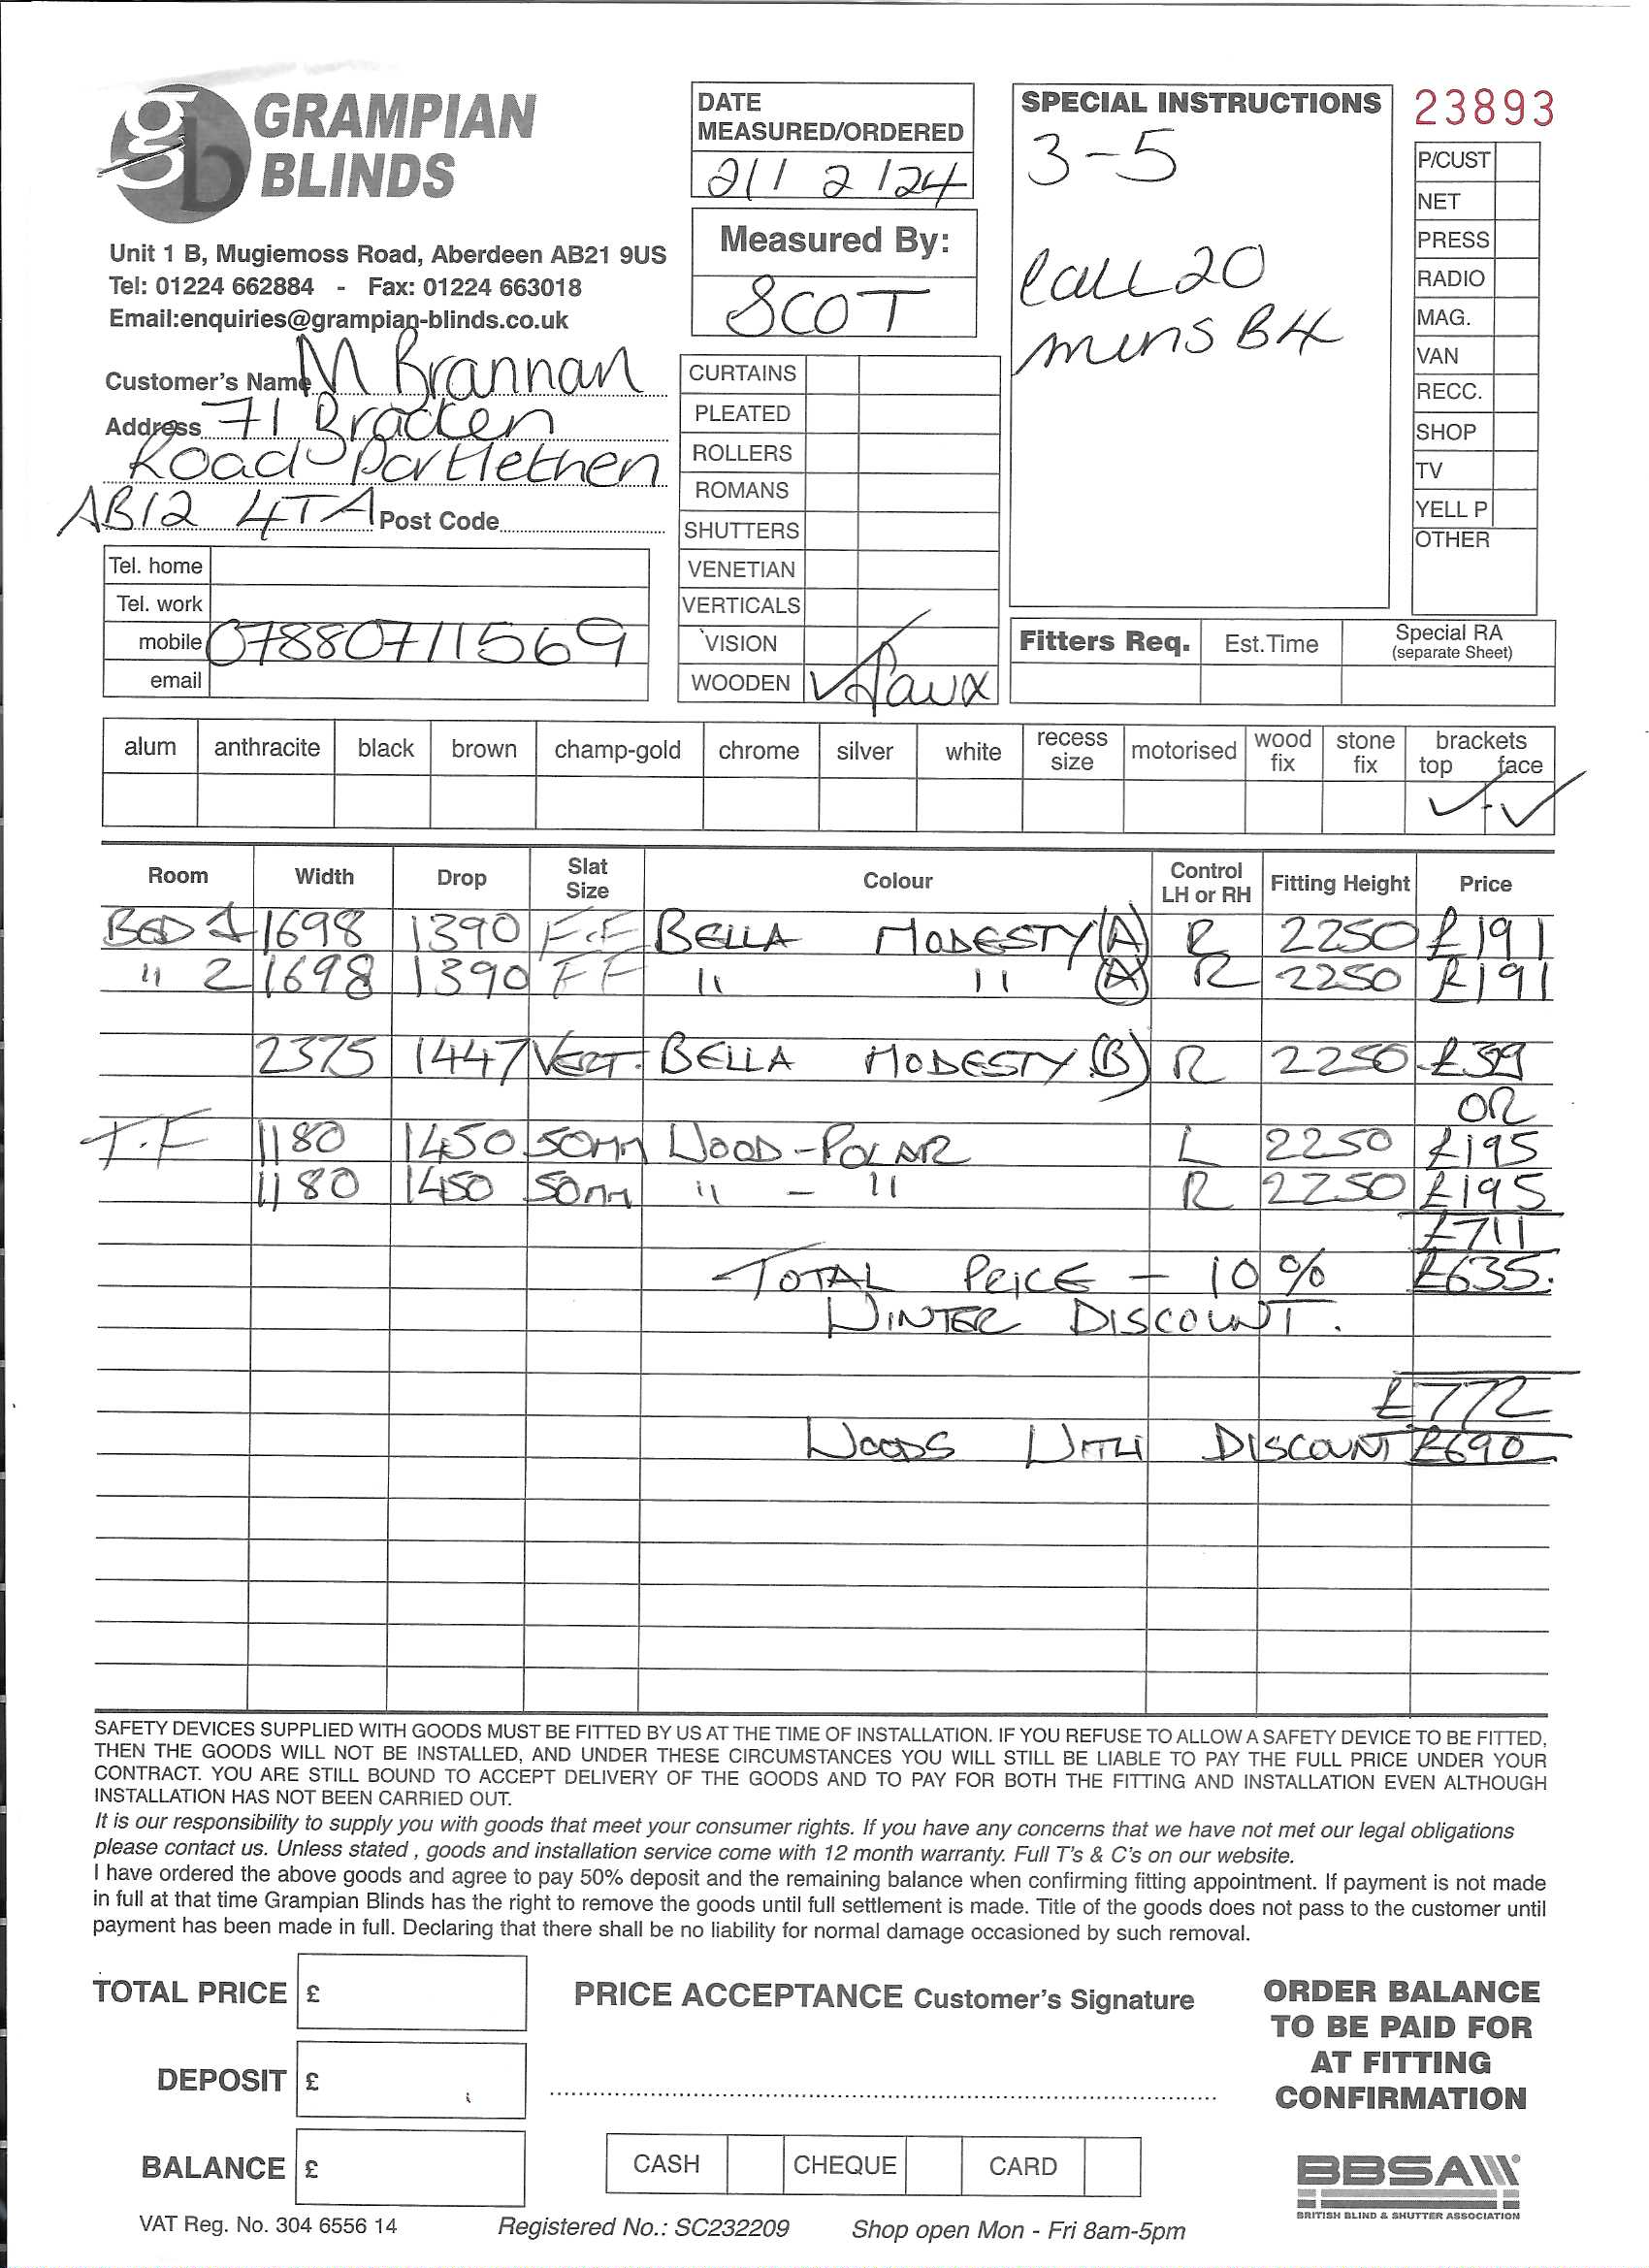 GRAMPIAN
BLINDS
Unit 1 B, Mugiemoss Road, Aberdeen AB21 9US
Tel: 01224 662884 - Fax: 01224 663018
Email:enquiries@grampian-blinds.co.uk
Customer's Name M Brannan
Address 71 Bracken
Road Portlethen
AB12 4TA Post Code
Tel. home
Tel. work
mobile 07880711569
email
DATE
MEASURED/ORDERED
21/2/24
Measured By:
SCOT
CURTAINS
PLEATED
ROLLERS
ROMANS
SHUTTERS
VENETIAN
VERTICALS
VISION
WOODEN ✓ Faux
SPECIAL INSTRUCTIONS
3-5
Call 20
mins B4
23893
P/CUST
NET
PRESS
RADIO
MAG.
VAN
RECC.
SHOP
TV
YELL P
OTHER
Fitters Req. Est.Time Special RA
(separate Sheet)
alum anthracite black brown champ-gold chrome silver white recess size motorised wood fix stone fix brackets top face
✓ - ✓
Room Width Drop Slat Size Colour Control LH or RH Fitting Height Price
BED 1 1698 1390 F.F BELLA MODESTY (A) R 2250 £191
" 2 1698 1390 FF " " (A) R 2250 £191
2375 1447 VERT. BELLA MODESTY (B) R 2250
OR
T.F 1180 1450 50mm WOOD-POLAR L 2250 £195
1180 1450 50mm " - " R 2250 £195
£711
TOTAL PRICE - 10% £635.
WINTER DISCOUNT.
£772
WOODS WITH DISCOUNT £690
SAFETY DEVICES SUPPLIED WITH GOODS MUST BE FITTED BY US AT THE TIME OF INSTALLATION. IF YOU REFUSE TO ALLOW A SAFETY DEVICE TO BE FITTED,
THEN THE GOODS WILL NOT BE INSTALLED, AND UNDER THESE CIRCUMSTANCES YOU WILL STILL BE LIABLE TO PAY THE FULL PRICE UNDER YOUR
CONTRACT. YOU ARE STILL BOUND TO ACCEPT DELIVERY OF THE GOODS AND TO PAY FOR BOTH THE FITTING AND INSTALLATION EVEN ALTHOUGH
INSTALLATION HAS NOT BEEN CARRIED OUT.
It is our responsibility to supply you with goods that meet your consumer rights. If you have any concerns that we have not met our legal obligations
please contact us. Unless stated , goods and installation service come with 12 month warranty. Full T's & C's on our website.
I have ordered the above goods and agree to pay 50% deposit and the remaining balance when confirming fitting appointment. If payment is not made
in full at that time Grampian Blinds has the right to remove the goods until full settlement is made. Title of the goods does not pass to the customer until
payment has been made in full. Declaring that there shall be no liability for normal damage occasioned by such removal.
TOTAL PRICE £
DEPOSIT £
BALANCE £
PRICE ACCEPTANCE Customer's Signature
CASH CHEQUE CARD
ORDER BALANCE
TO BE PAID FOR
AT FITTING
CONFIRMATION
BBSA
BRITISH BLIND & SHUTTER ASSOCIATION
VAT Reg. No. 304 6556 14 Registered No.: SC232209 Shop open Mon - Fri 8am-5pm